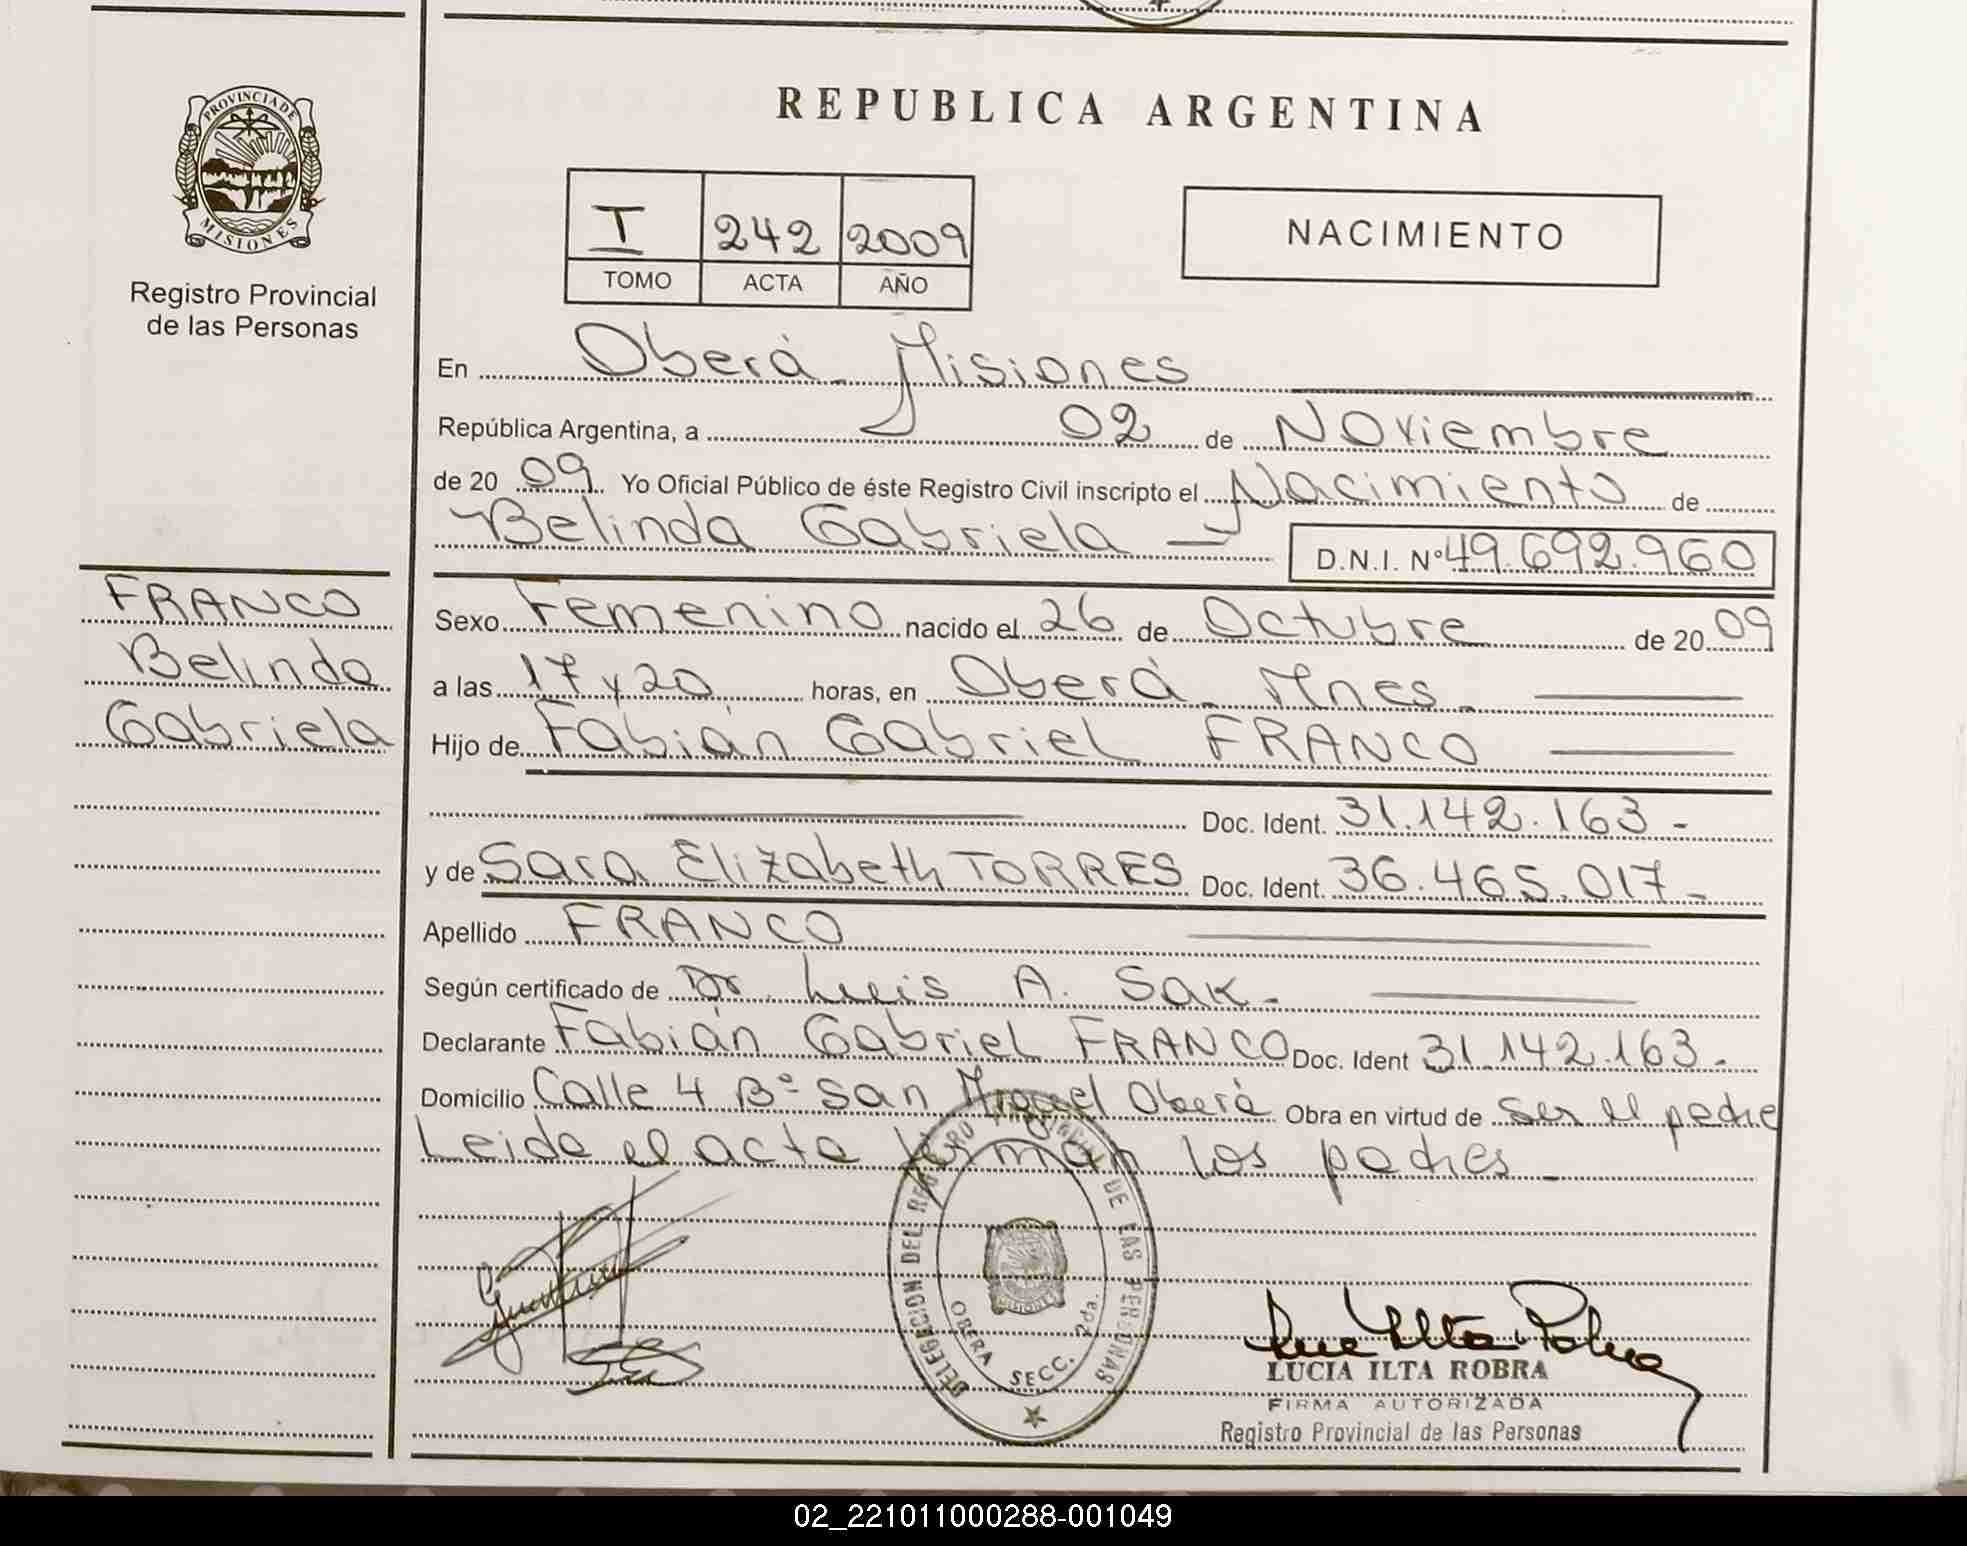 REPUBLICA ARGENTINA
PROVINCIA DE
MISIONES
Registro Provincial
de las Personas
I 242 2009
TOMO ACTA AÑO
NACIMIENTO
En Oberá Misiones
República Argentina, a 02 de Noviembre
de 20 09 Yo Oficial Público de éste Registro Civil inscripto el Nacimiento de
Belinda Gabriela — D.N.I. Nº 49.692.960
FRANCO
Belinda
Gabriela
Sexo Femenino nacido el 26 de Octubre de 20 09
a las 17 y 20 horas, en Oberá Mnes.
Hijo de Fabián Gabriel FRANCO
Doc. Ident. 31.142.163-
y de Sara Elizabeth TORRES Doc. Ident. 36.465.017-
Apellido FRANCO
Según certificado de Dr. Luis A. Sak-
Declarante Fabián Gabriel FRANCO Doc. Ident 31.142.163-
Domicilio Calle 4 Bº San Miguel Oberá Obra en virtud de ser el padre
Leida el acta firman los padres-
DELEGACION DEL REGISTRO PROVINCIAL DE LAS PERSONAS
MISIONES
OBERA SECC. 2da.
LUCIA ILTA ROBRA
FIRMA AUTORIZADA
Registro Provincial de las Personas
02_221011000288-001049